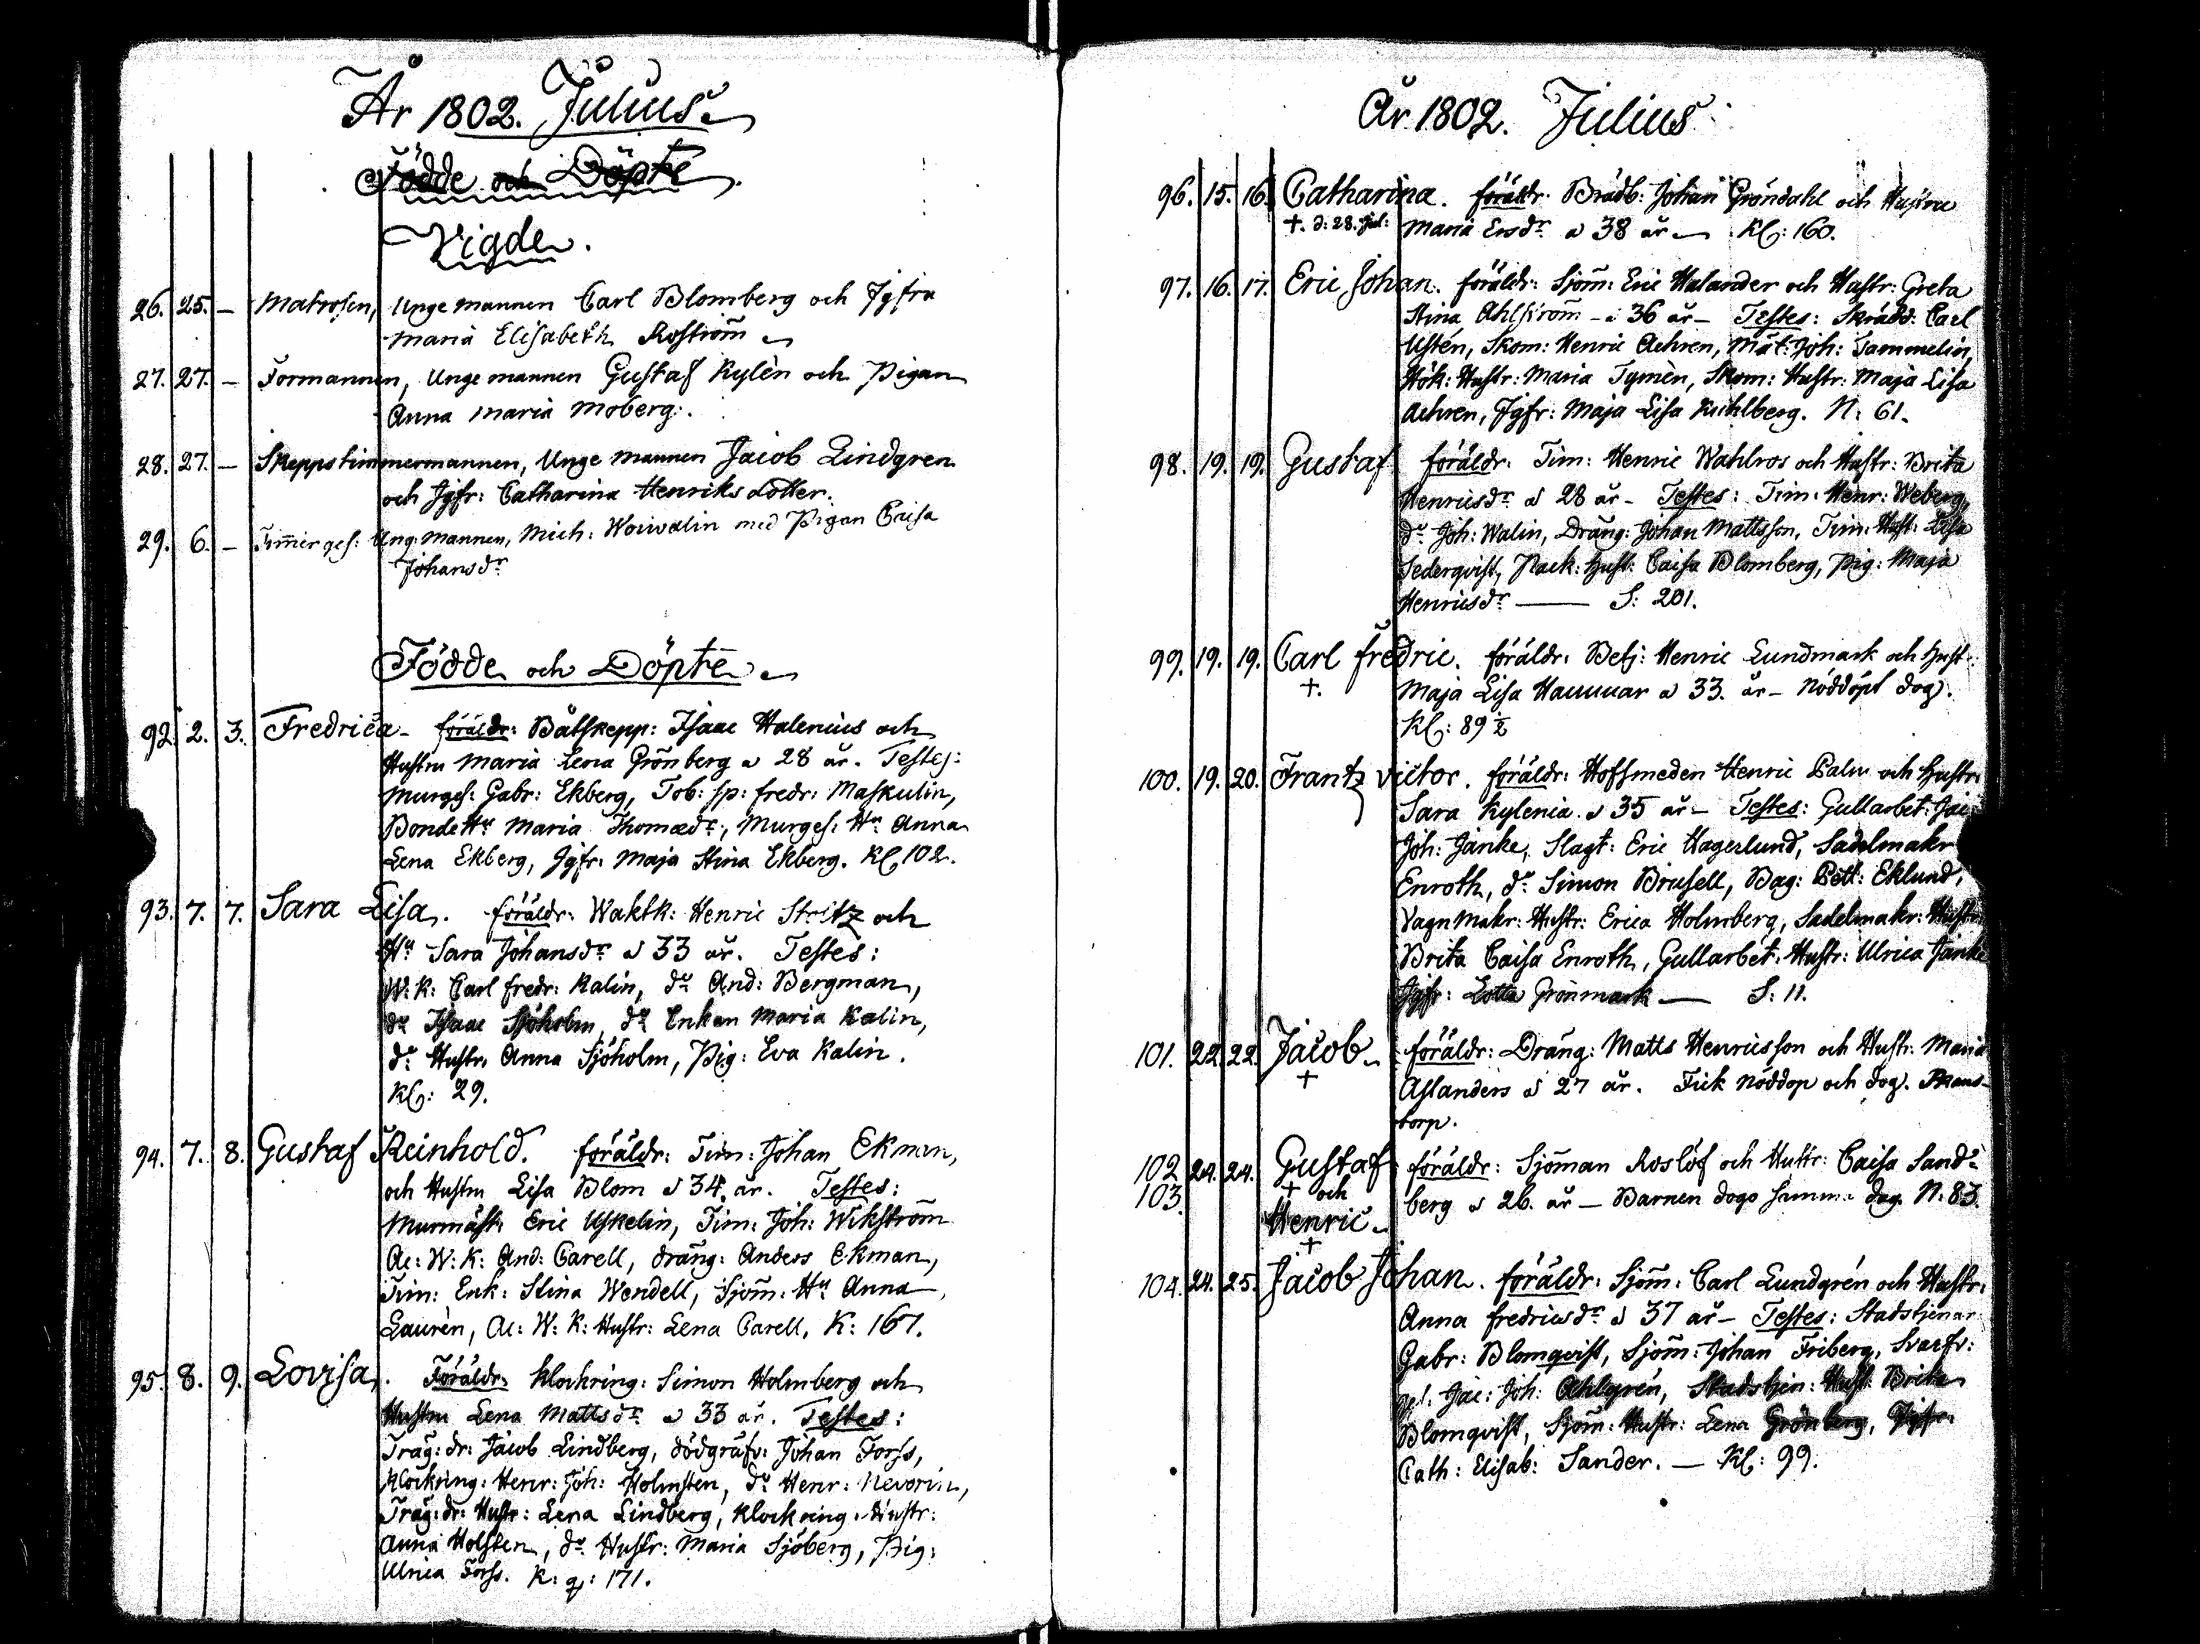 År 1802. Julius.
Födde och Döpte
Vigde.
26. 25. – Matrosen, Unge mannen Carl Blomberg och Jgfru
Maria Elisabeth Roström
27. 27. – Formannen, Unge mannen Gustaf Kylèn och Pigan
Anna Maria Moberg.
28. 27. – Skeppstimmermannen, Unge mannen Jacob Lindgren
och Jgfr: Catharina Henriks dotter.
29. 6. – Timmer ges: Ung: mannen, Mich: Woiwalin med Pigan Caisa
Johansdr
Födde och Döpte
92. 2. 3. Fredrica – föräldr: Båtskepp: Isaac Halenius och
Hustru Maria Lena Grönberg a 28 år. Testes:
Murges: Gabr: Ekberg, Tob: sp: fredr: Maskulin,
Bonde Hu Maria Thomædr, Murges: Hu Anna
Lena Ekberg, Jgfr: Maja Stina Ekberg. Kl 102.
93. 7. 7. Sara Lisa. föräldr: Waktk: Henric Stritz och
Hu Sara Johansdr a 33 år. Testes:
W: K: Carl fredr: Kalin, do And: Bergman,
do Isaac Sjöholm, do Enkan Maria Kalin,
do Hustr: Anna Sjöholm, Pig: Eva Kalin.
Kl: 29.
94. 7. 8. Gustaf Reinhold. föräldr: Tim: Johan Ekman,
och Hustru Lisa Blom a 34 år. Testes:
Murmäst: Eric Uskelin, Tim: Joh: Wikström
Ac: W: K: And: Carell, dräng: Anders Ekman,
Tim: Enk: Stina Wendell, Sjöm: Hu Anna
Laurèn, Ac: W: K: Hustr: Lena Carell, K: 167.
95. 8. 9. Lovisa. Föräldr: Klockring: Simon Holmberg och
Hustru Lena Mattsdr a 33 år. Testes:
Träg: dr: Jacob Lindberg, dödgräfv: Johan Forss,
Klockring: Henr: Joh: Holmsten, do Henr: Nevorin,
Träg: dr: Hustr: Lena Lindberg, Klockring: Hustr:
Anna Holsten, do Hustr: Maria Sjöberg, Pig:
Ulrica Forss. K: q: 171.
År 1802. Julius
96. 15. 16. Catharina. föräldr. Brädb: Johan Gröndahl och Hustru
+. d: 28. Jul: Maria Ersdr a 38 år – Kl: 160.
97. 16. 17. Eric Johan. föräldr: Sjöm: Eric Halander och Hustr: Greta
Stina Ahlström – a 36 år – Testes: Skrädd: Carl
Ustén, Skom: Henric Aehren, Mat: Joh: Tammelin,
Hök: Hustr: Maria Tymèn, Skom: Hustr: Maja Lisa
Aehren, Jgfr: Maja Lisa Kuhlberg. N: 61.
98. 19. 19. Gustaf föräldr: Tim: Henric Wahlros och Hustr: Brita
Henricsdr a 28 år – Testes: Tim: Henr: Weberg,
do Joh: Walin, Dräng: Johan Mattsson, Tim: Hust: Lisa
Sederqvist, Pack: Hust: Caisa Blomberg, Pig: Maja
Henricsdr — S: 201.
99. 19. 19. Carl fredric. föräldr: Betj: Henric Lundmark och Hust:
+. Maja Lisa a 33. år – nöddöpt dog.
Kl: 89 ½
100. 19. 20. Frantz Victor. föräldr: Hofsmeden Henric Palm och Hustr:
Sara Kylenia a 35 år – Testes: Gullarbet: Jac:
Joh: Janke, Slagt: Eric Hagerlund, Sadelmakr
Enroth, do Simon Brusell, Bag: Pett: Eklund,
Vagn Makr: Hustr: Erica Holmberg, Sadelmakr: Hustr:
Brita Caisa Enroth, Gullarbet: Hustr: Ulrica Janke
Jgfr: Lotta Grönmark — S: 11.
101. 22. 22. Jacob – föräldr: Dräng: Matts Henricsson och Hustr: Maria
+ Aslanders a 27 år. Fick nöddop och dog.
torp.
102. 24. 24. Gustaf föräldr: Sjöman Roslöf och Hustr: Caisa Sand-
103. + och berg a 26. år – Barnen dogo samma dag. N: 83.
Henric –
+
104. 24. 25. Jacob Johan. föräldr: Sjöm: Carl Lundgrén och Hustr:
Anna fredricsdr a 37 år – Testes: Stadstjenar
Gabr: Blomqvist, Sjöm: Johan Friberg, Svarfv:
gel. Jac: Joh: Ahlgrén, Stadstjen: Hust: Brita
Blomqvist, Sjöm: Hustr: Lena Grönberg, Jgfr:
Cath: Elisab: Sander. – Kl: 99.